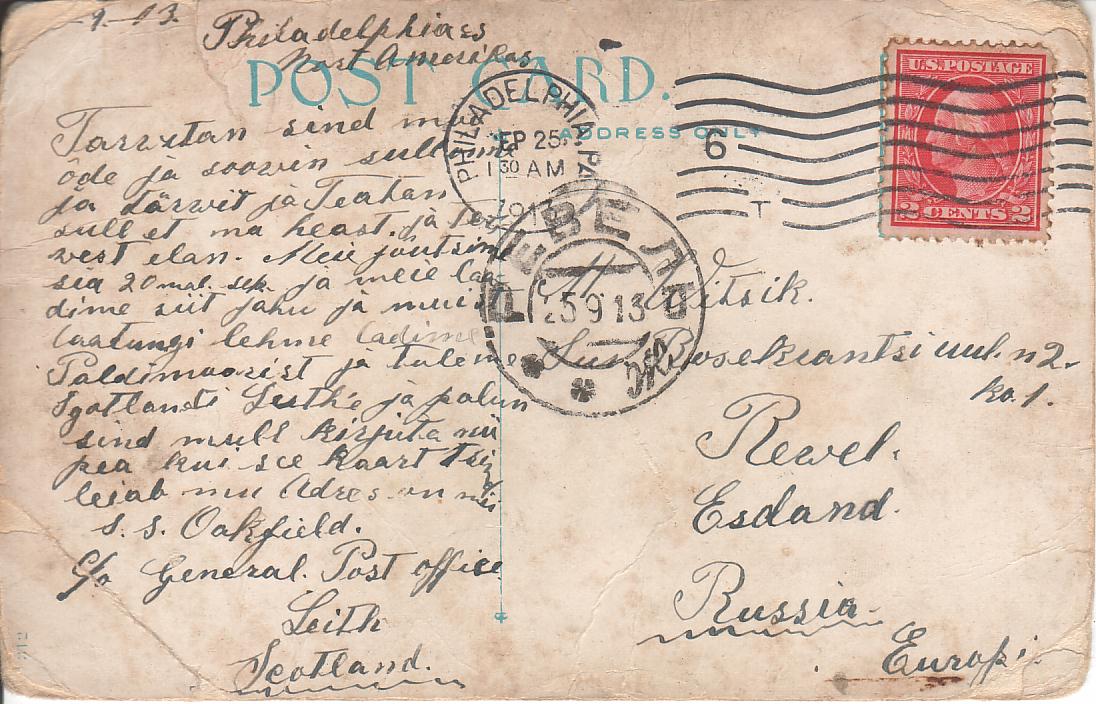 -9-13.
Philadelphias
Nort Amerikas
POST CARD.
ADDRESS ONLY
PHILADELPHIA, PA
SEP 25
1 30 AM
1913
6
T
U.S. POSTAGE
2 CENTS 2
РЕВЕЛЬ
25 9 13
Terwitan sind mu
õde ja soowin sull
ja tärwit ja Teatan
sull et ma heast. ja
west elan. Meie joutsime
sia 20 mal. sek. ja meie laa
dime siit jahu ja muist
laatungi lehme ladime
Paldimoorist ja tuleme
Sgotlandi Leithe ja palun
sind mull kirjuta nii
pea kui see kaart
leiab mu Adres on nii
S.S. Oakfield.
C/o General. Post office
Leith
Scotland.
Suur Rosekrantsi uul. n 2.
ko. 1.
Rewel.
Esdand.
Russia.
Europi.
212